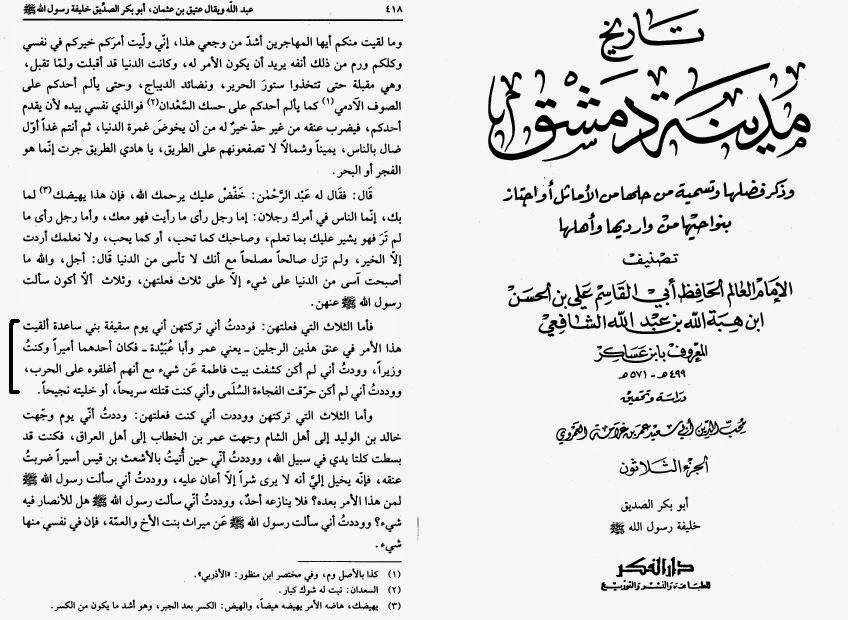 تاريخ
مدينة دمشق
وذكر فضلها وتسمية من حلها من الأماثل أو اجتاز
بنواحيها من وارديها وأهلها
تصنيف
الإمام العالم الحافظ أبي القاسم علي بن الحسن
ابن هبة الله بن عبد الله الشافعي
المعروف بابن عساكر
٤٩٩ هـ - ٥٧١ هـ
دراسة وتحقيق
محب الدين أبي سعيد عمر بن غرامة العمروي
الجزء الثلاثون
أبو بكر الصديق
خليفة رسول الله ﷺ
دار الفكر
للطباعة والنشر والتوزيع
٤١٨ عبد الله ويقال عتيق بن عثمان، أبو بكر الصدّيق خليفة رسول الله ﷺ
وما لقيت منكم أيها المهاجرين أشدّ من وجعي هذا، إنّي ولّيت أمركم خيركم في نفسي
وكلكم ورم من ذلك أنفه يريد أن يكون الأمر له، وكانت الدنيا قد أقبلت ولمّا تقبل،
وهي مقبلة حتى تتخذوا ستور الحرير، ونضائد الديباج، وحتى يألم أحدكم على
الصوف الآدمي(١) كما يألم أحدكم على حسك السَّعْدان(٢) فوالذي نفسي بيده لأن يقدم
أحدكم، فيضرب عنقه من غير حدّ خيرٌ له من أن يخوضَ غمرة الدنيا، ثم أنتم غداً أوّل
ضال بالناس، يميناً وشمالاً لا تصفعونهم على الطريق، يا هادي الطريق جرت إنّما هو
الفجر أو البحر.
قَال: فقَال له عَبد الرَّحْمٰن: خَفّضْ عليك يرحمك الله، فإن هذا يهيضك(٣) لما
بك، إنّما الناس في أمرك رجلان: إما رجل رأى ما رأيت فهو معك، وأما رجل رأى ما
لم تَرَ فهو يشير عليك بما تعلم، وصاحبك كما تحب، أو كما يحب، ولا نعلمك أردت
إلّا الخير، ولم تزل صالحاً مصلحاً مع أنك لا تأسى من الدنيا قَال: أجل، والله ما
أصبحت آسى من الدنيا على شيء إلّا على ثلاث فعلتهن، وثلاث ألّا أكون سألت
رسول الله ﷺ عنهن.
فأما الثلاث التي فعلتهن: فوددتُ أني تركتهن أني يوم سقيفة بني ساعدة ألقيت
هذا الأمر في عنق هذين الرجلين ـ يعني عمر وأبا عُبَيْدة ـ فكان أحدهما أميراً وكنتُ
وزيراً، ووددتُ أني لم أكن كشفت بيت فاطمة عَن شيء مع أنهم أغلقوه على الحرب،
ووددتُ أني لم أكن حرّقت الفجاءة السُلَمى وأني كنت قتلته سريحاً، أو خليته نجيحاً.
وأما الثلاث التي تركتهن ووددت أني كنت فعلتهن: وددتُ أنّي يوم وجّهت
خالد بن الوليد إلى أهل الشام وجهت عمر بن الخطاب إلى أهل العراق، فكنت قد
بسطت كلتا يدي في سبيل الله، ووددتُ أنّي حين أُتيتُ بالأشعث بن قيس أسيراً ضربتُ
عنقه، فإنّه يخيل إليَّ أنه لا يرى شراً إلّا أعان عليه، ووددتُ أني سألت رسول الله ﷺ
لمن هذا الأمر بعده؟ فلا ينازعه أحدٌ، ووددتُ أنّي سألت رسول الله ﷺ هل للأنصار فيه
شيء؟ ووددتُ أني سألت رسول الله ﷺ عَن ميراث بنت الأخ والعمّة، فإن في نفسي منها
شيء.
(١) كذا بالأصل وم، وفي مختصر ابن منظور: «الأذربي».
(٢) السعدان: نبت له شوك كبار.
(٣) يهيضك، هاضه الأمر يهيضه هيضاً، والهيض: الكسر بعد الجبر، وهو أشد ما يكون من الكسر.